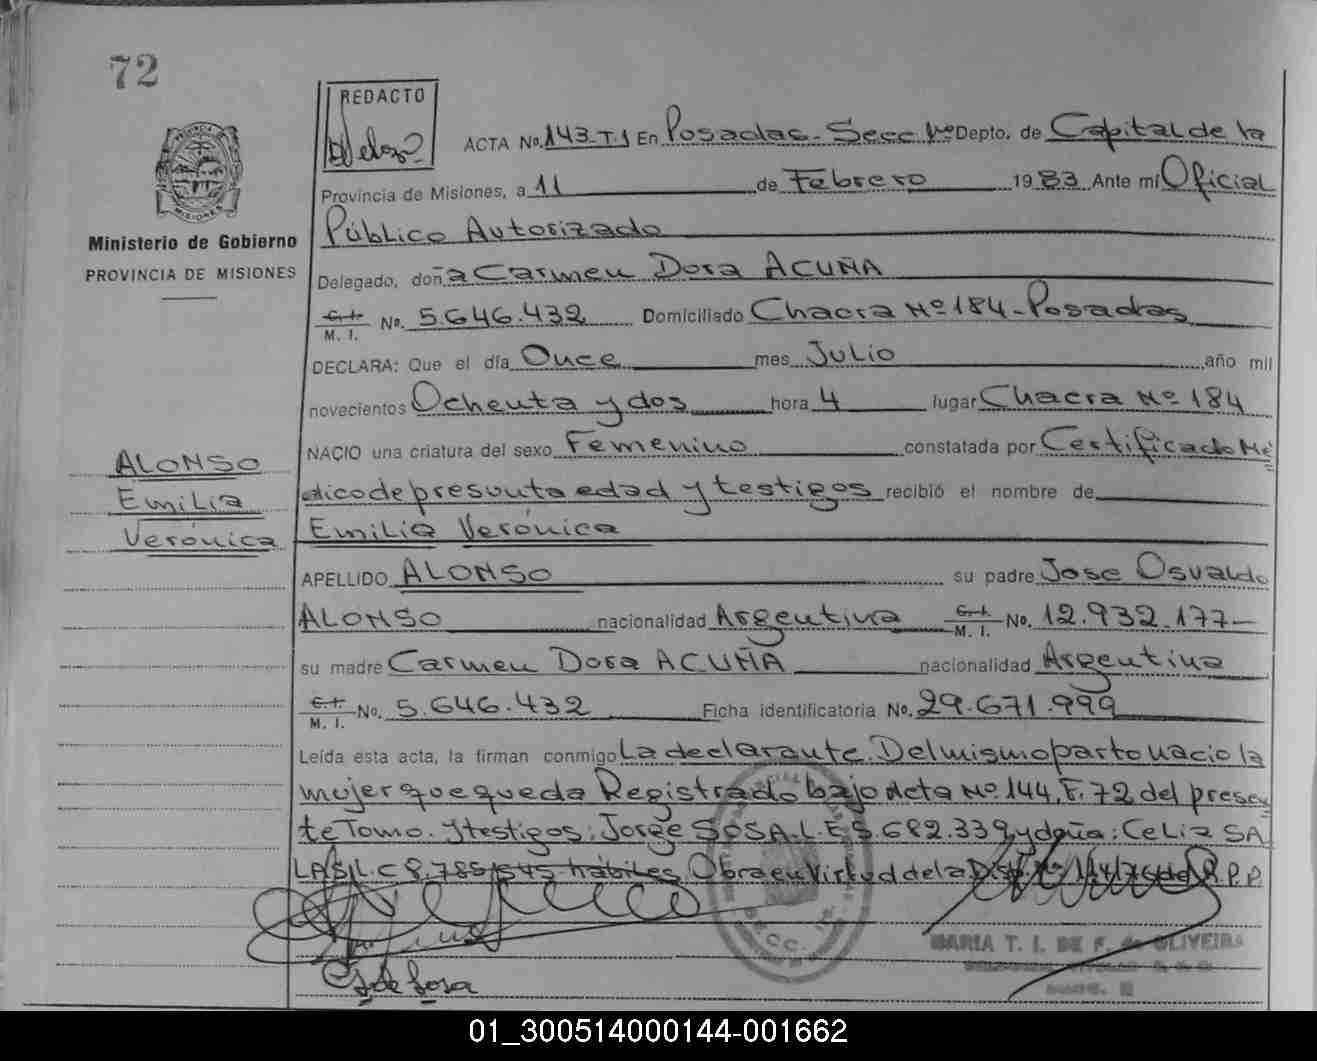 72
REDACTO
ACTA No. 143-T.1 En Posadas-Secc. 1ª Depto. de Capital de la
Provincia de Misiones, a 11 de Febrero 1983 Ante mí Oficial
Público Autorizado
Delegado, doña Carmen Dora ACUÑA
C.I. M. I. No. 5.646.432 Domiciliado Chacra Nº 184-Posadas
DECLARA: Que el día Once mes Julio año mil
novecientos Ochenta y dos hora 4 lugar Chacra Nº 184
NACIO una criatura del sexo Femenino constatada por Certificado Mé
dico de presunta edad y testigos recibió el nombre de
Emilia Verónica
APELLIDO ALONSO su padre Jose Osvaldo
ALONSO nacionalidad Argentina C.I. M. I. No. 12.932.177-
su madre Carmen Dora ACUÑA nacionalidad Argentina
C.I. M. I. No. 5.646.432 Ficha identificatoria No. 29.671.999
Leída esta acta, la firman conmigo La declarante. Del mismo parto nacio la
mujer que queda Registrado bajo Acta Nº 144, F. 72 del presen
te Tomo. Y testigos: Jorge SOSA-L.E 5.682.339 y doña: Celia SA
LAS L.C 8.785.545 hábiles. Obra en virtud de la R.P.P.
MARIA T. I. DE F. de OLIVEIRA
Ministerio de Gobierno
PROVINCIA DE MISIONES
ALONSO
Emilia
Verónica
01_300514000144-001662